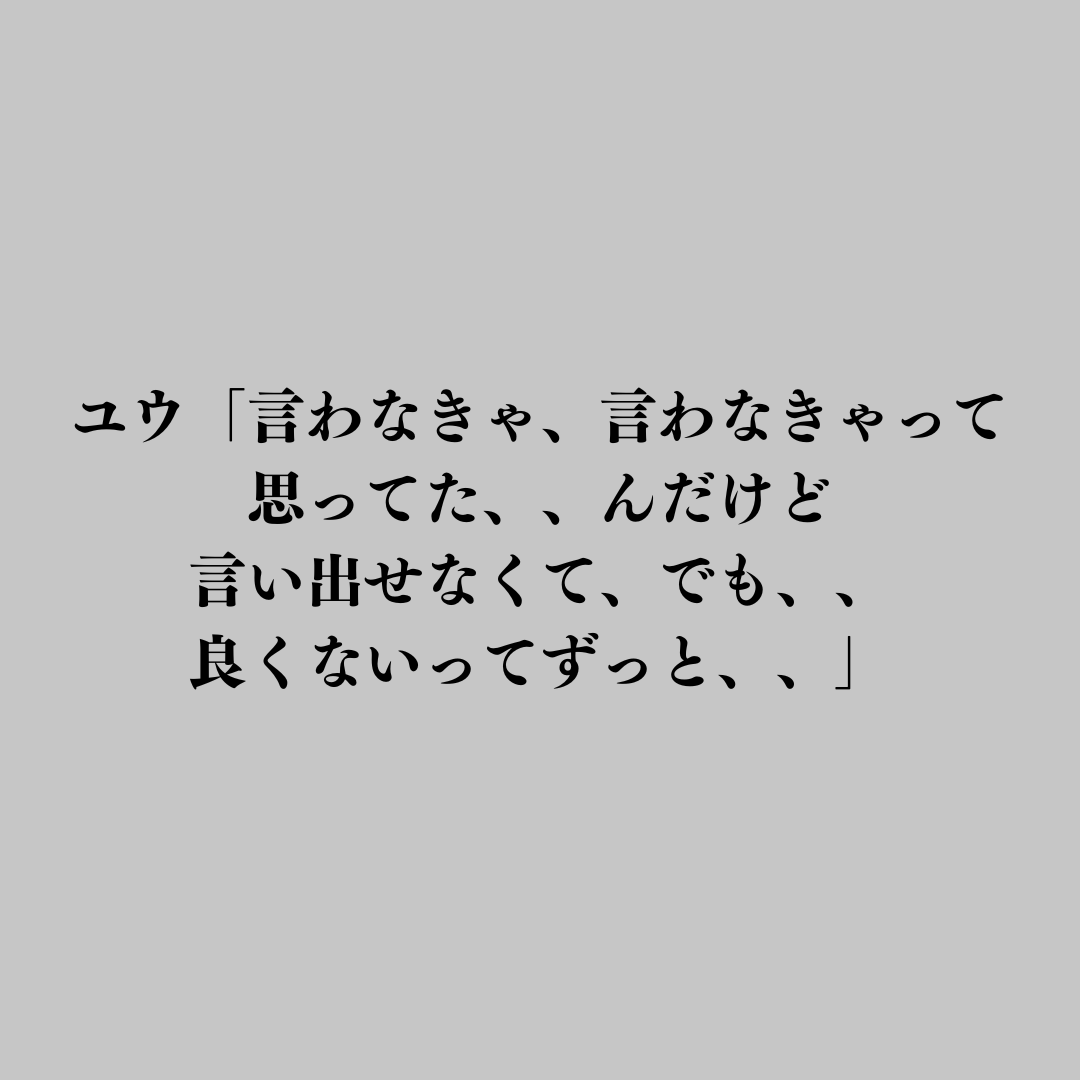 ユウ「言わなきゃ、言わなきゃって
思ってた、、んだけど
言い出せなくて、でも、、
良くないってずっと、、」